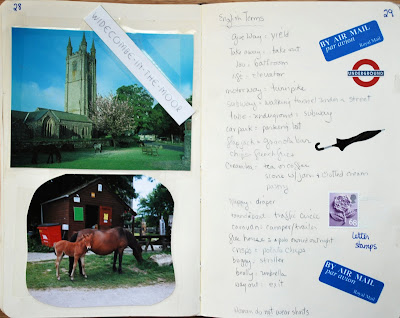 28
WIDECOMBE-IN-THE-MOOR
29
English Terms
give way: yield
take away: take out
loo: bathroom
lift: elevator
motorway: turnpike
subway: walking tunnel under a street
tube: underground: subway
car park: parking lot
chips: french fries
Creamtea: tea or coffee
scone w/jam & clotted cream
pastry
nappy: diaper
roundabout: traffic circle
caravan: camper/trailer
crisps: potato chips
buggy: stroller
brolly: umbrella
way out: exit
women do not wear shorts
BY AIR MAIL
par avion
Royal Mail
UNDERGROUND
letter
stamps
BY AIR MAIL
par avion
Royal Mail